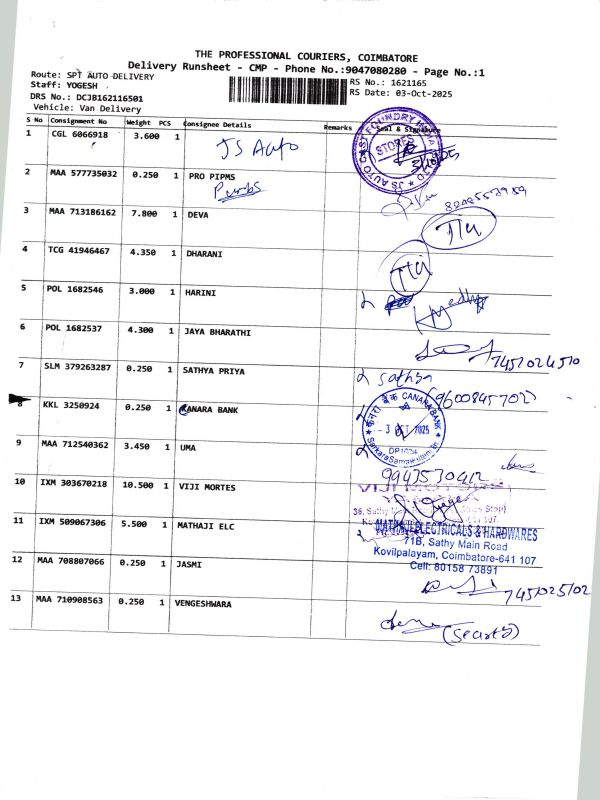 THE PROFESSIONAL COURIERS, COIMBATORE
Delivery Runsheet - CMP - Phone No.:9047080280 - Page No.:1
Route: SPT AUTO DELIVERY
RS No.: 1621165
Staff: YOGESH
RS Date: 03-Oct-2025
DRS No.: DCJB162116501
Vehicle: Van Delivery
S No Consignment No Weight PCS Consignee Details Remarks Seal & Signature
1 CGL 6066918 3.600 1 JS Auto
JS AUTO CAST FOUNDRY INDIA
STORES
2 MAA 577735032 0.250 1 PRO PIPMS
3 MAA 713186162 7.800 1 DEVA
4 TCG 41946467 4.350 1 DHARANI
5 POL 1682546 3.000 1 HARINI
6 POL 1682537 4.300 1 JAYA BHARATHI
7451024510
7 SLM 379263287 0.250 1 SATHYA PRIYA Sathya
(9600845702)
8 KKL 3250924 0.250 1 CANARA BANK
केनरा बैंक CANARA BANK
- 3 OCT 2025
9 MAA 712540362 3.450 1 UMA
9943530412
10 IXM 303670218 10.500 1 VIJI MORTES
36, Sathy
11 IXM 509067306 5.500 1 MATHAJI ELC
ELECTRICALS & HARDWARES
71B, Sathy Main Road
Kovilpalayam, Coimbatore-641 107
Cell: 80158 73891
12 MAA 708807066 0.250 1 JASMI
7451025102
13 MAA 710908563 0.250 1 VENGESHWARA